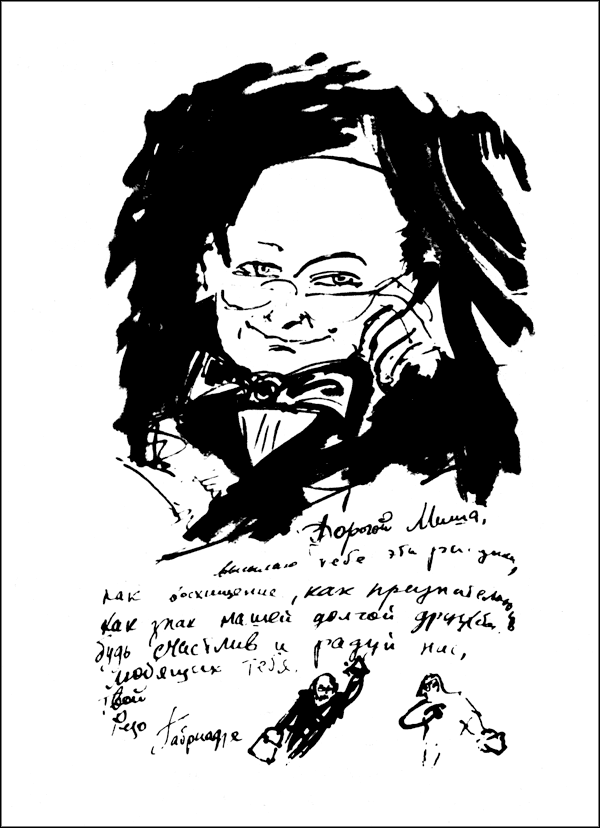 Дорогой Миша,
высылаю тебе эти рисунки,
как восхищение, как признательность
как знак нашей долгой дружбы.
будь счастлив и радуй нас,
любящих тебя.
Твой
Резо Габриадзе